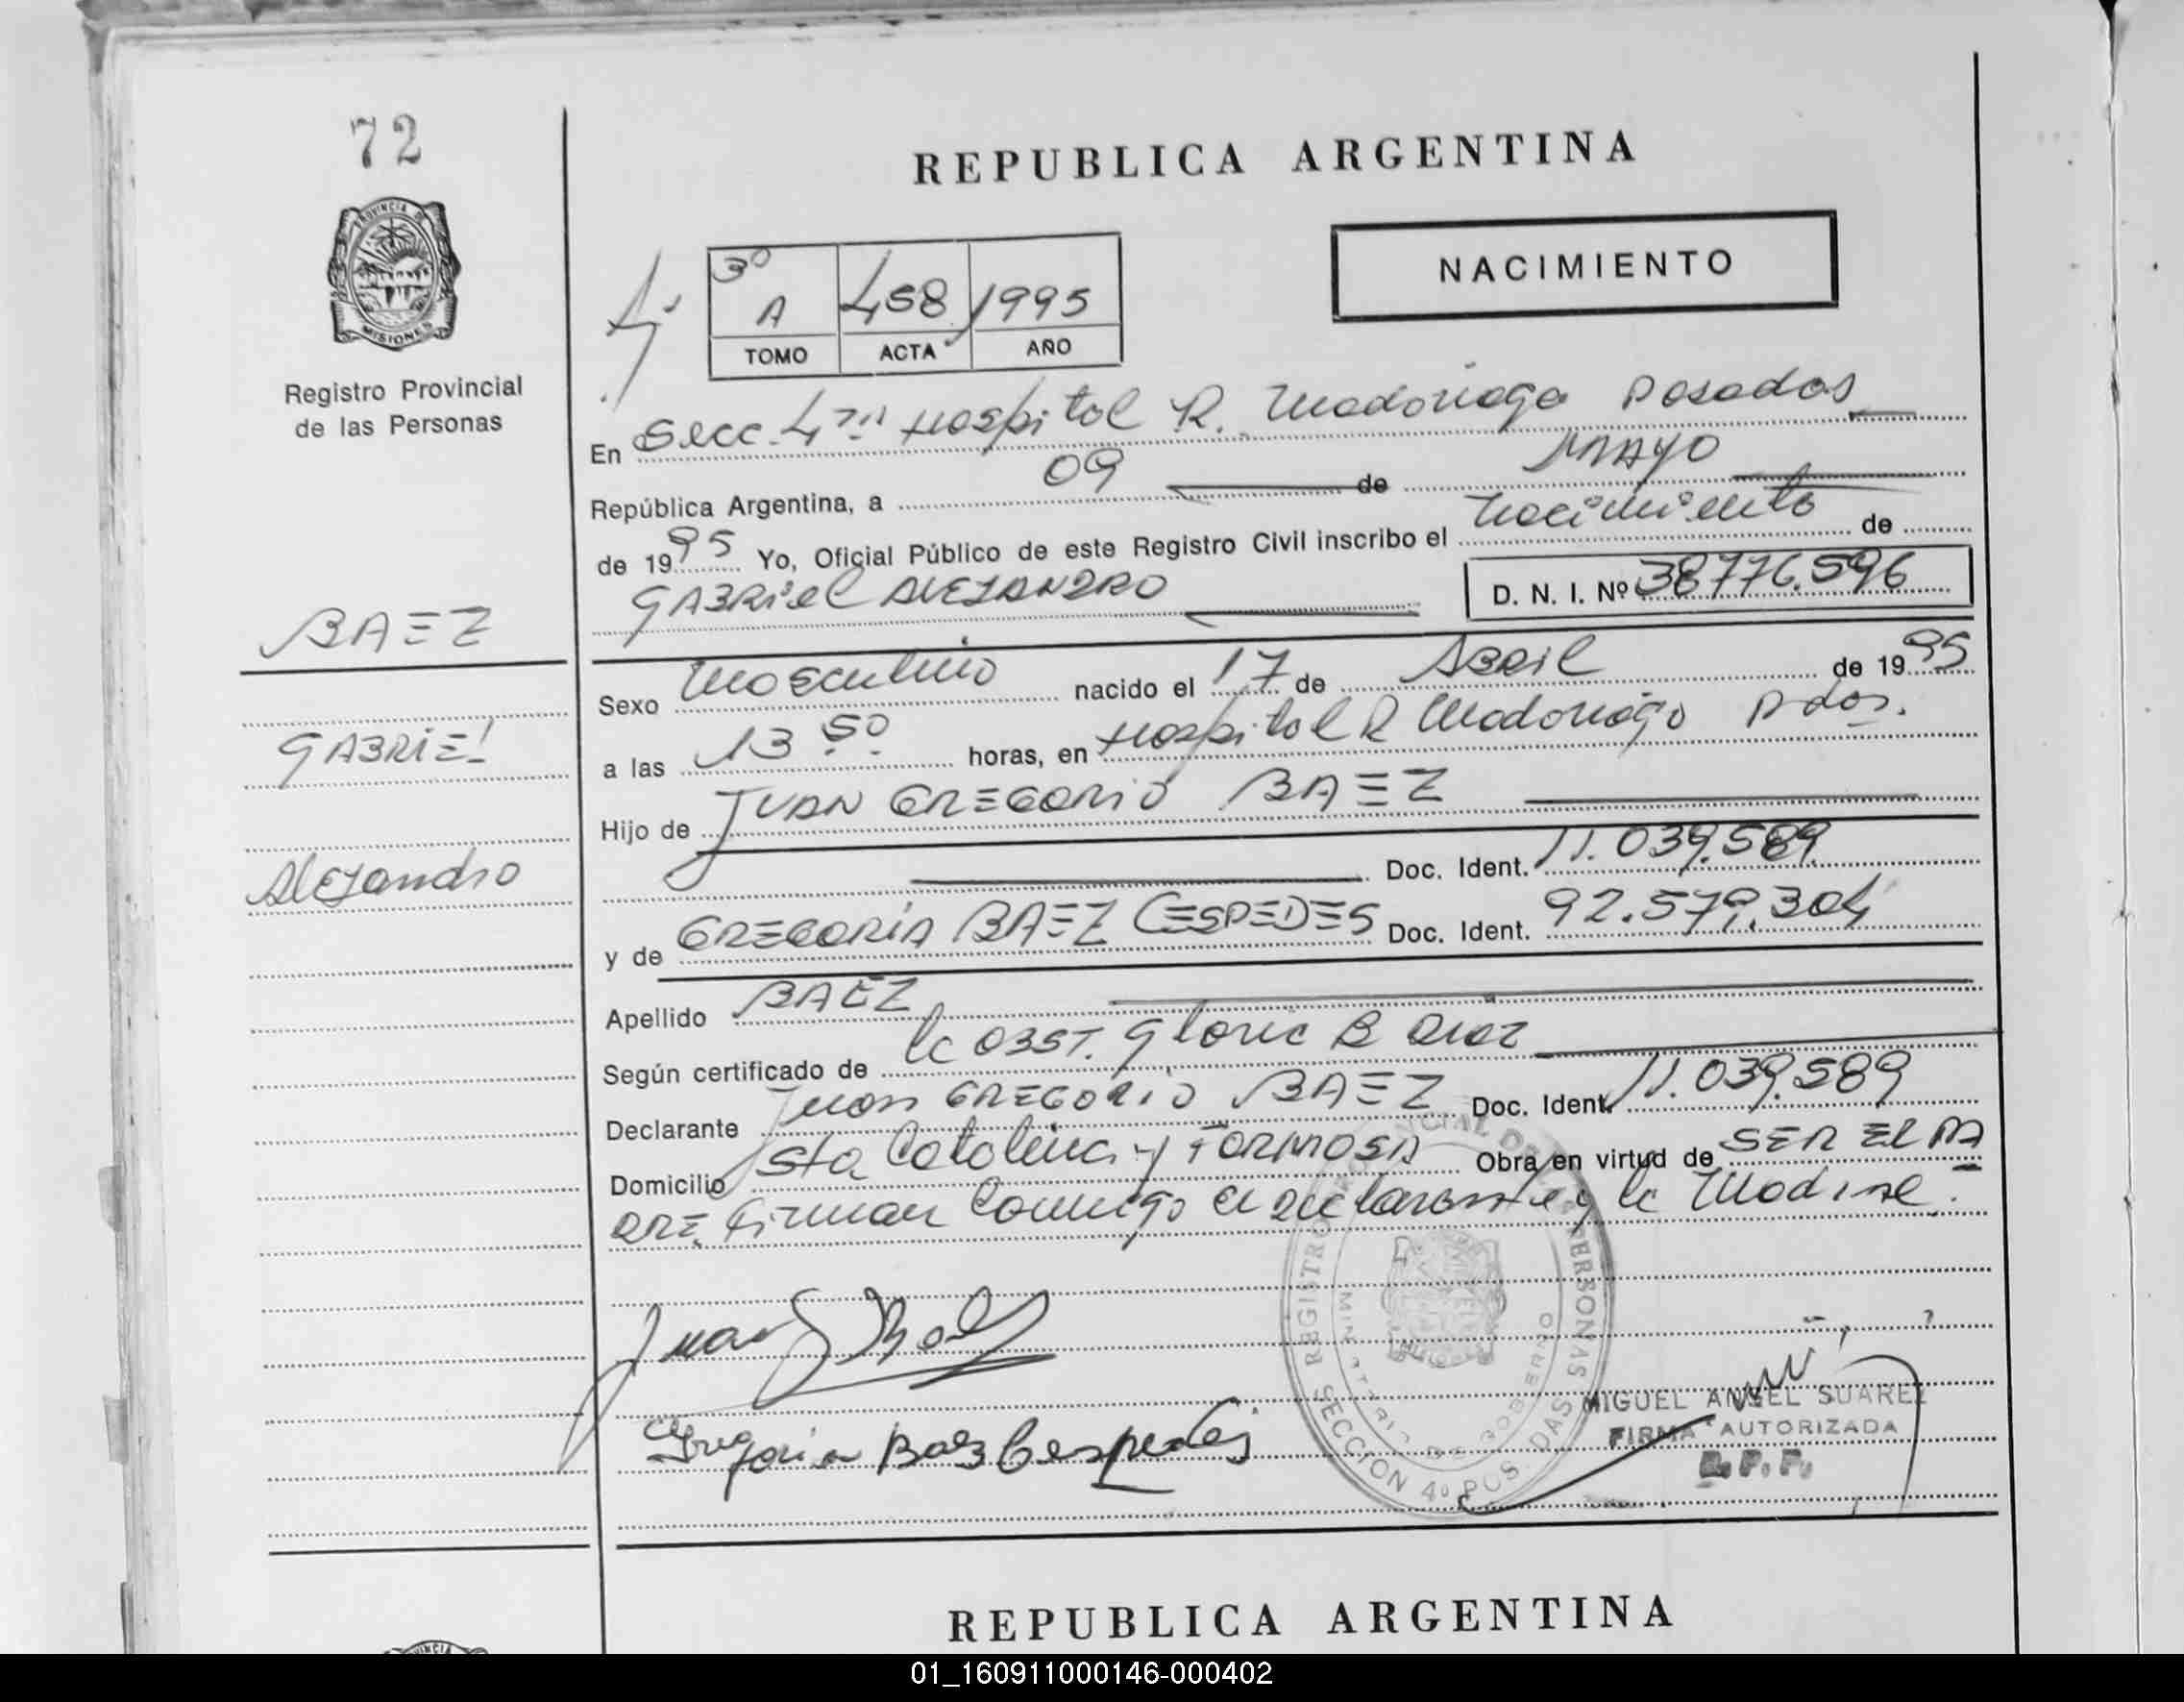 72
PROVINCIA DE
MISIONES
Registro Provincial
de las Personas
BAEZ
GABRIEL
Alejandro
REPUBLICA ARGENTINA
NACIMIENTO
3º
A 458 1995
TOMO ACTA AÑO
En Secc. 4ta Hospital R. Madariaga Posadas
República Argentina, a 09 de MAYO
de 1995 Yo, Oficial Público de este Registro Civil inscribo el nacimiento de
GABRIEL ALEJANDRO D. N. I. Nº 38776.596
Sexo masculino nacido el 17 de ABRIL de 1995
a las 13 50 horas, en Hospital R Madariaga Pdas.
Hijo de JUAN GREGORIO BAEZ
Doc. Ident. 11.039.589
y de GREGORIA BAEZ CESPEDES Doc. Ident. 92.579.304
Apellido BAEZ
Según certificado de la OBST. Gloria B Diaz
Declarante Juan GREGORIO BAEZ Doc. Ident. 11.039.589
Domicilio Sta Catalina y FORMOSA Obra en virtud de SER EL PA
DRE. Firman conmigo el declarante y la Madre.
Juan G Baez
Gregoria Baez Cespedes
REGISTRO PROVINCIAL DE LAS PERSONAS
MINISTERIO DE GOBIERNO
SECCION 4º POSADAS
MIGUEL ANGEL SUAREZ
FIRMA AUTORIZADA
R. P. P.
REPUBLICA ARGENTINA
PROVINCIA
01_160911000146-000402